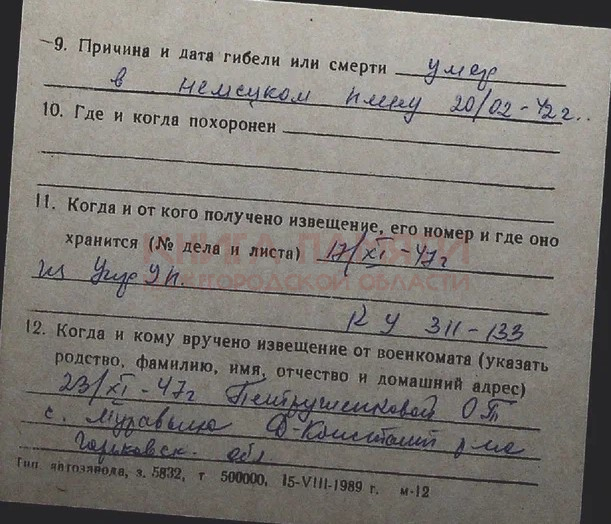 9. Причина и дата гибели или смерти умер
в немецком плену 20/02-42г.
10. Где и когда похоронен
11. Когда и от кого получено извещение, его номер и где оно
хранится (№ дела и листа) 17/XI-47г
КНИГА ПАМЯТИ
НИЖЕГОРОДСКОЙ ОБЛАСТИ
из
КУ 311-133
12. Когда и кому вручено извещение от военкомата (указать
родство, фамилию, имя, отчество и домашний адрес)
23/XI-47г Петрушенковой О Т
с. Муравьиха Д-Констант р-на
Горьковск. обл
Тип. автозавода, з. 5832, т 500000, 15-VIII-1989 г. м-12